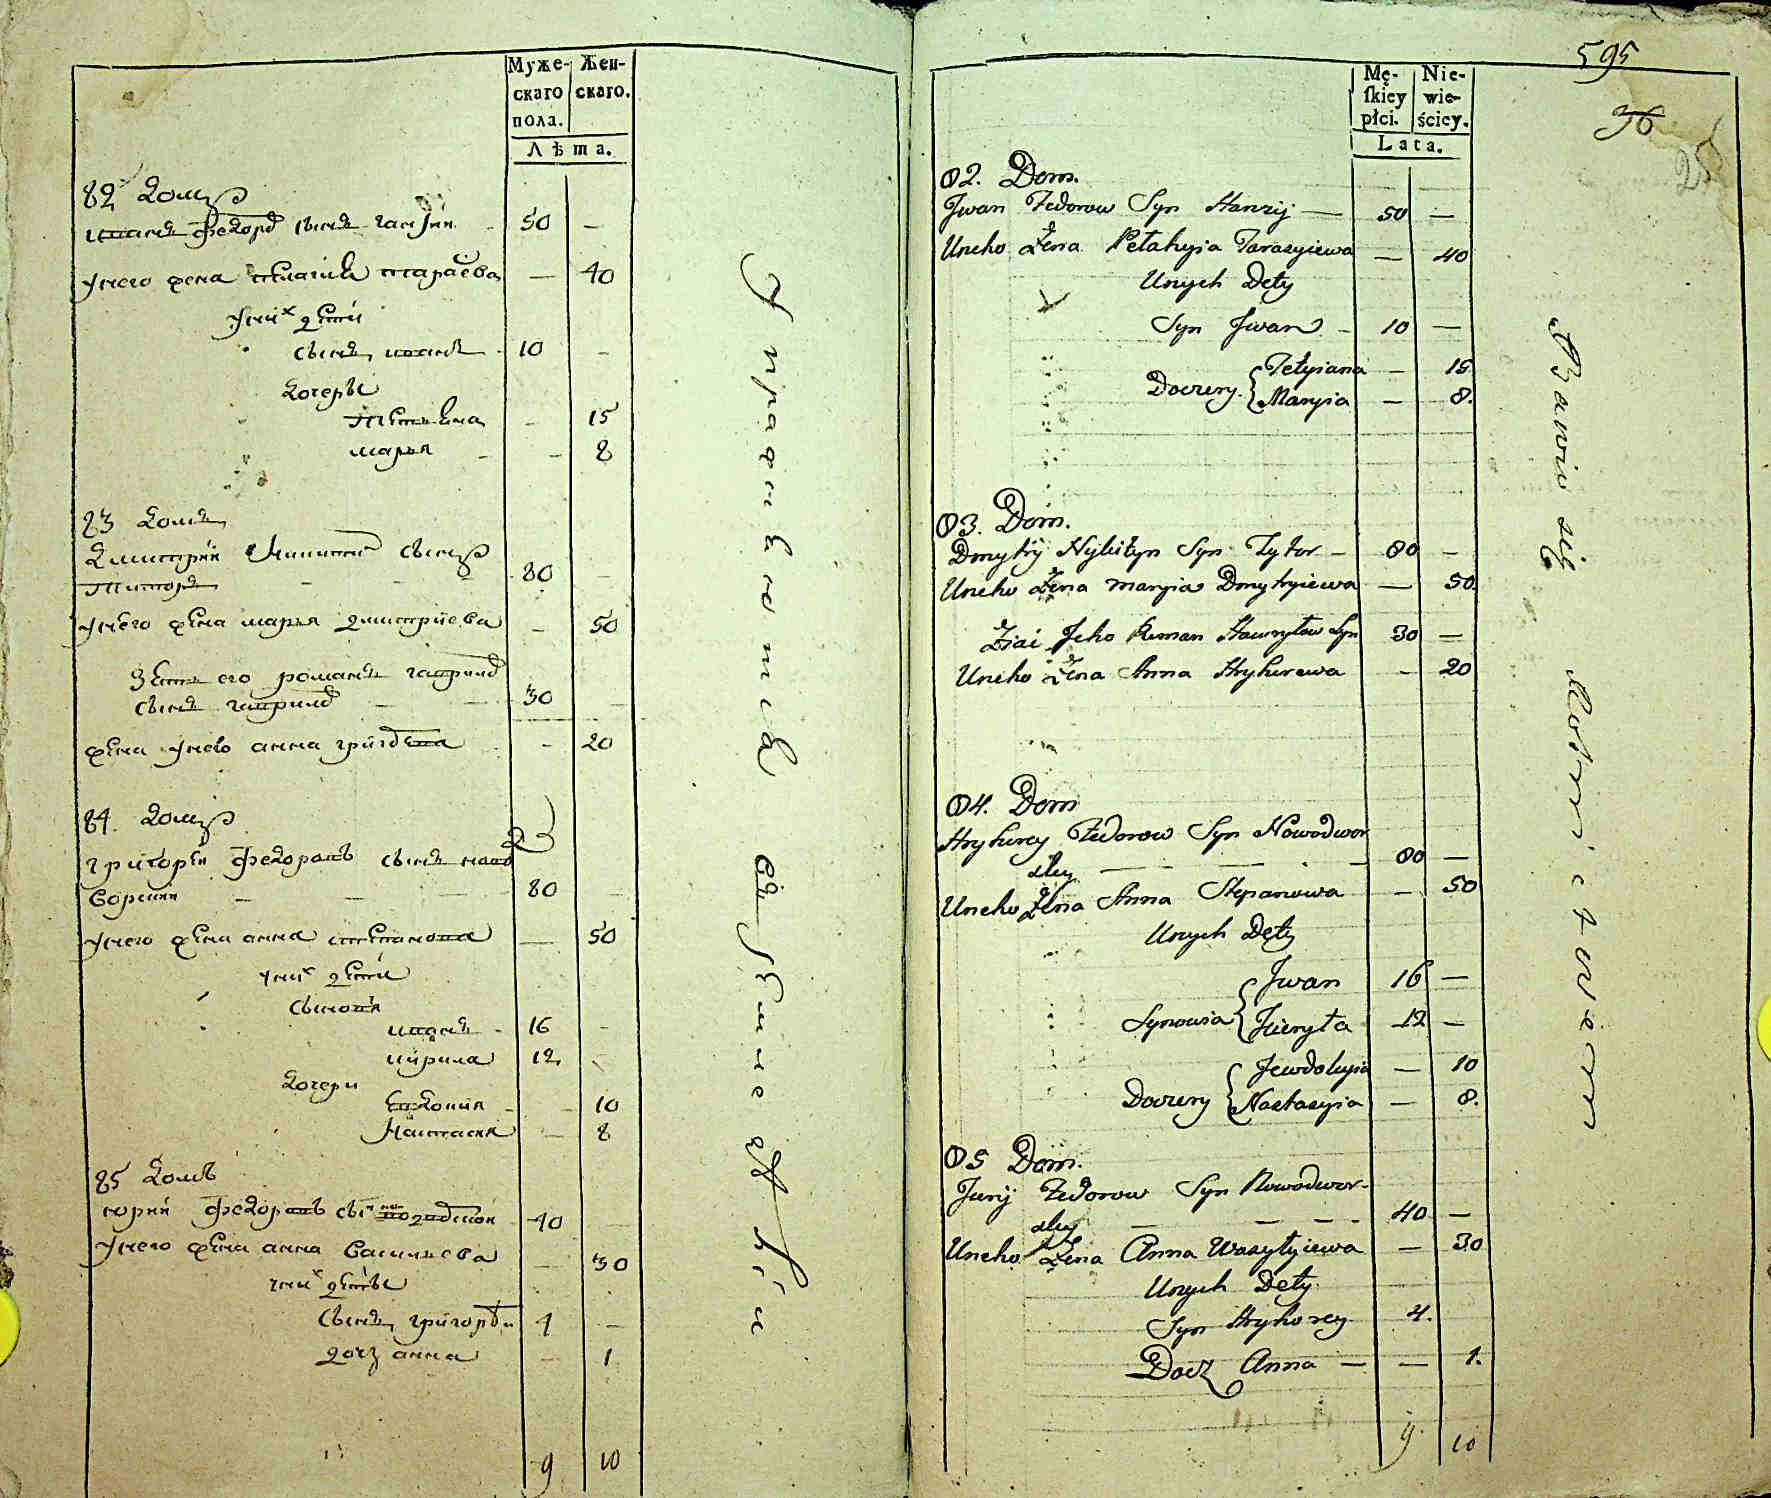 Муже-
скаго
пола.
Жен-
скаго.
Лѣта.
82 домъ
иванъ федоровъ сынъ ганзiи 50 -
унего жена пелагия тарасева - 40
уних дети
сынъ иванъ - 10 -
дочеры
татьяна - 15
марья - 8
83 домъ
дмитрий никитинъ сынъ
титоръ - 80 -
унего жена марья дмитриева - 50
зять его романъ гаврилов
сынъ гаврилов - 30 -
жена унего анна григорева - 20
84 домъ
григорiи федоровъ сынъново
дорскии - 80 -
унего жена анна степанова - 50
уних дети
сыновя
иванъ - 16 -
кирила 12
дочери
евдокия - 10
настасия - 8
85 домъ
юрии федоровъ сынъ новодворский 40 -
унего жена анна василева - 30
уних дѣты
сынъ григорiи 4 -
дочъ анна - 1
9 10
упражняется въ земледѣлiи
595
36
Mę-
ſkiey
płci.
Nie-
wie-
ściey.
Lata.
82. Dom.
Jwan Fedorow Syn Hanzij — 50 —
Uneho Żena Pełahyia Tarasyiewa — 40
Unych Dety
Syn Jwan - 10 —
Doczery. { Tetyiana — 15
Maryia — 8.
83. Dom.
Dmytrÿ Nykityn Syn Tytor - 80 -
Uneho Żena maryia Dmytryiewa — 50.
Ziat Jeho Roman Hawryłow Syn 30 —
Uneho Żena Anna Hryhorewa - 20
84. Dom
Hryhorey Fedorow Syn Nowodwor
skij — 80 —
Uneho Żena Anna Stepanowa — 50
Unych Dety
Synowia { Jwan 16 —
Kieryła 12 —
Doczery { Jewdokyia — 10
Nastasyia — 8.
85 Dom.
Jurij Fedorow Syn Nowodwor-
skij — 40 —
Uneho Żena Anna Wasyłyiewa — 30
Unych Dety
Syn Hryhorey 4.
Docz Anna — — 1.
9. 10
Bawio się Rolnictwem